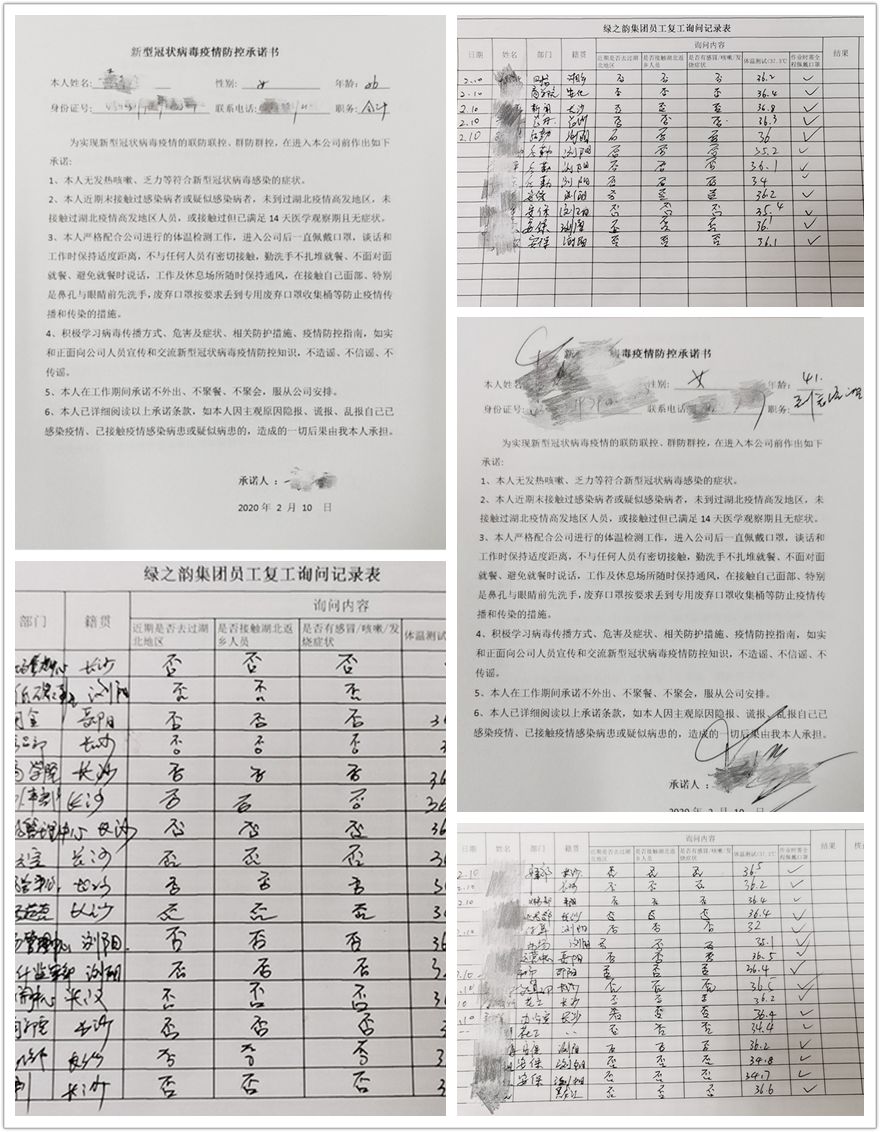 新型冠状病毒疫情防控承诺书
本人姓名: 性别: 女 年龄: 26
身份证号: 联系电话: 职务: 会计
为实现新型冠状病毒疫情的联防联控、群防群控，在进入本公司前作出如下
承诺:
1、本人无发热咳嗽、乏力等符合新型冠状病毒感染的症状。
2、本人近期未接触过感染病者或疑似感染病者，未到过湖北疫情高发地区，未
接触过湖北疫情高发地区人员，或接触过但已满足 14 天医学观察期且无症状。
3、本人严格配合公司进行的体温检测工作，进入公司后一直佩戴口罩，谈话和
工作时保持适度距离，不与任何人员有密切接触，勤洗手不扎堆就餐、不面对面
就餐、避免就餐时说话，工作及休息场所随时保持通风，在接触自己面部、特别
是鼻孔与眼睛前先洗手，废弃口罩按要求丢到专用废弃口罩收集桶等防止疫情传
播和传染的措施。
4、积极学习病毒传播方式、危害及症状、相关防护措施、疫情防控指南，如实
和正面向公司人员宣传和交流新型冠状病毒疫情防控知识，不造谣、不信谣、不
传谣。
5、本人在工作期间承诺不外出、不聚餐、不聚会，服从公司安排。
6、本人已详细阅读以上承诺条款，如本人因主观原因隐报、谎报、乱报自己已
感染疫情、已接触疫情感染病患或疑似病患的，造成的一切后果由我本人承担。
承诺人：
2020 年 2 月 10 日
绿之韵集团员工复工询问记录表
询问内容
部门 籍贯 近期是否去过湖北地区 是否接触湖北返乡人员 是否有感冒/咳嗽/发烧症状 体温测试
长沙 否 否 否
浏阳 否 否 否
岳阳 否 否 否
长沙 否 否 否
商学院 长沙 否 否 否 36
长沙 否 否 否 36
管理中心 长沙 否 否 否 36
长沙 否 否 否
长沙 否 否 否
长沙 否 否 否
管理中心 浏阳 否 否 否 36
浏阳 否 否 否
长沙 否 否 否
长沙 否 否 否
否 否 否
长沙 否 否 否
绿之韵集团员工复工询问记录表
日期 姓名 部门 籍贯 询问内容 结果
近期是否去过湖北地区 是否接触湖北返乡人员 是否有感冒/咳嗽/发烧症状 体温测试(37.3℃) 作业时需全程佩戴口罩
2.10 否 否 否 36.2 ✓
2.10 商学院 安化 否 否 否 36.4 ✓
2.10 新闻 长沙 否 否 否 36.8 ✓
2.10 否 否 否 36.3 ✓
2.10 后勤 浏阳 否 否 否 36 ✓
后勤 浏阳 否 否 否 35.2 ✓
后勤 浏阳 否 否 否 36.1 ✓
后勤 浏阳 否 否 否 34
安保 浏阳 否 否 否 36.2 ✓
安保 浏阳 否 否 否 35.4 ✓
安保 浏阳 否 否 否 36.1 ✓
安保 浏阳 否 否 否 36.1 ✓
新 毒疫情防控承诺书
本人姓名 性别: 女 年龄: 41.
身份证号: 联系电话 职务:
为实现新型冠状病毒疫情的联防联控、群防群控，在进入本公司前作出如下
承诺:
1、本人无发热咳嗽、乏力等符合新型冠状病毒感染的症状。
2、本人近期未接触过感染病者或疑似感染病者，未到过湖北疫情高发地区，未
接触过湖北疫情高发地区人员，或接触过但已满足 14 天医学观察期且无症状。
3、本人严格配合公司进行的体温检测工作，进入公司后一直佩戴口罩，谈话和
工作时保持适度距离，不与任何人员有密切接触，勤洗手不扎堆就餐、不面对面
就餐、避免就餐时说话，工作及休息场所随时保持通风，在接触自己面部、特别
是鼻孔与眼睛前先洗手，废弃口罩按要求丢到专用废弃口罩收集桶等防止疫情传
播和传染的措施。
4、积极学习病毒传播方式、危害及症状、相关防护措施、疫情防控指南，如实
和正面向公司人员宣传和交流新型冠状病毒疫情防控知识，不造谣、不信谣、不
传谣。
5、本人在工作期间承诺不外出、不聚餐、不聚会，服从公司安排。
6、本人已详细阅读以上承诺条款，如本人因主观原因隐报、谎报、乱报自己已
感染疫情、已接触疫情感染病患或疑似病患的，造成的一切后果由我本人承担。
承诺人：
2020 年 2 月 10 日
日期 姓名 部门 籍贯 询问内容 结果
近期是否去过湖北地区 是否接触湖北返乡人员 是否有感冒/咳嗽/发烧症状 体温测试(37.3℃) 作业时需全程佩戴口罩
2.10 长沙 否 否 否 36.5 ✓
2.10 否 否 否 36.2 ✓
2.10 否 否 否 36.4 ✓
长沙 否 否 否 36.4 ✓
2.10 浏阳 否 否 否 32 ✓
浏阳 否 否 否 35.1 ✓
岳阳 否 否 否 36.5 ✓
2.10 邵阳 否 否 否 36.4 ✓
2.10 长沙 否 否 否 36.5 ✓
2.10 长沙 否 否 否 36.2 ✓
2.10 办公室 长沙 否 否 否 36.4 ✓
否 否 否 34.4 ✓
浏阳 否 否 否 36.2 ✓
安保 浏阳 否 否 否 34.8 ✓
安保 浏阳 否 否 否 34.7 ✓
否 否 否 36.6 ✓